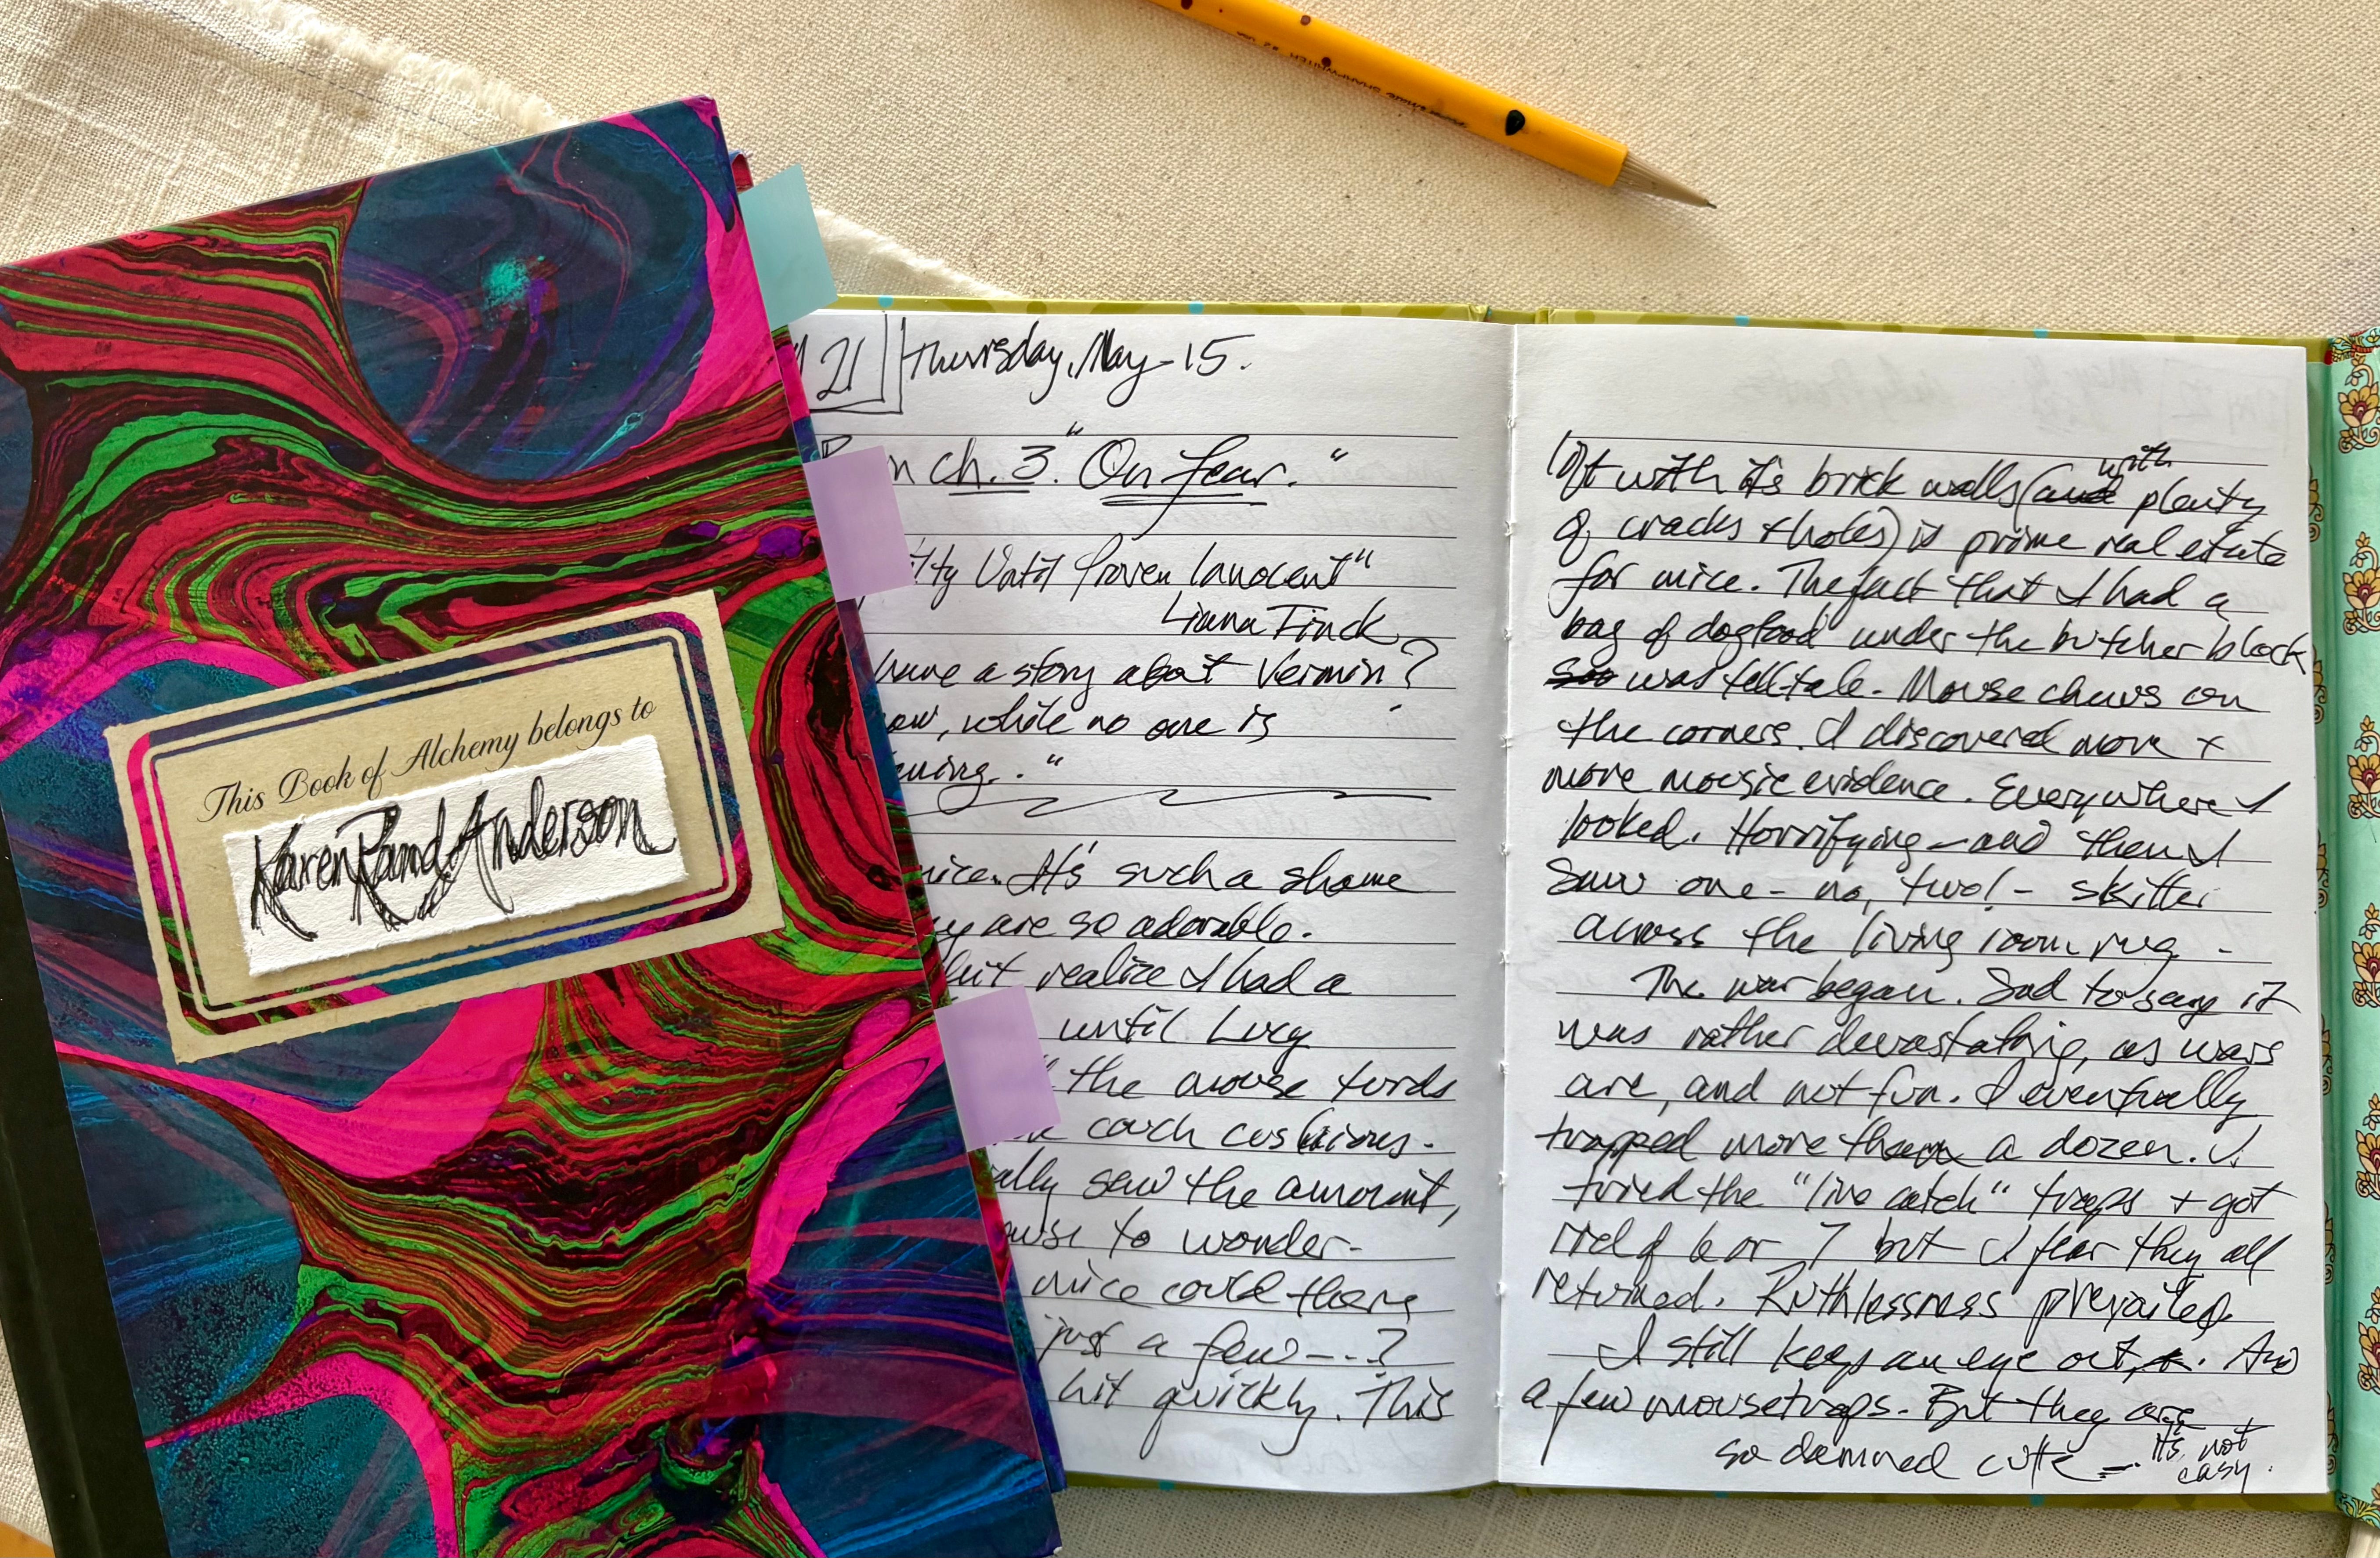 This Book of Alchemy belongs to
Karen Rand Anderson
21 Thursday, May 15.
ch. 3. "On fear."
Until Proven Innocent"
Liana Finck
have a story about Vermin?
, while no one is
."
It's such a shame
are so adorable.
realize I had a
until Lucy
the mouse turds
couch cushions.
saw the amount,
to wonder-
mice could there
just a few---?
hit quickly. This
loft with its brick walls (and with plenty
of cracks + holes) is prime real estate
for mice. The fact that I had a
bag of dogfood under the butcher block
was tell-tale. Mouse chews on
the corners. I discovered more +
more mousie evidence. Everywhere I
looked. Horrifying - and then I
saw one - no, two! - skitter
across the living room rug -
The war began. Sad to say it
was rather devastating, as wars
are, and not fun. I eventually
trapped more than a dozen. I
tried the "live catch" traps + got
rid of 6 or 7 but I fear they all
returned. Ruthlessness prevailed
I still keep an eye out. And
a few mousetraps. But they are
so damned cute - it's not
easy.